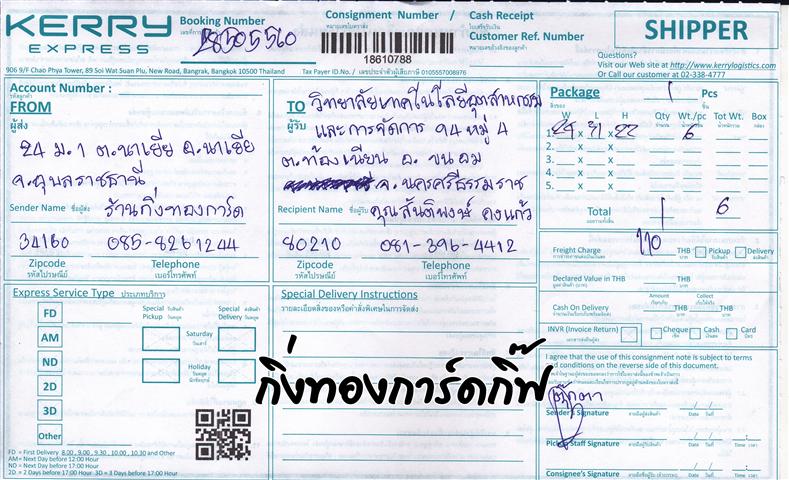 KERRY
EXPRESS
Booking Number
28505560
Consignment Number / หมายเลขใบตราส่ง
18610788
Cash Receipt
Customer Ref. Number
หมายเลขอ้างอิงของลูกค้า
SHIPPER
906 9/F Chao Phya Tower, 89 Soi Wat Suan Plu, New Road, Bangrak, Bangkok 10500 Thailand
Tax Payer ID.No. / เลขประจำตัวผู้เสียภาษี 0105557008976
Questions?
Visit our Web site at http://www.kerrylogistics.com
Or Call our customer at 02-338-4777
Account Number :
รหัสลูกค้า
FROM
ผู้ส่ง
24 ม.1 ต.นาเยีย อ.นาเยีย
จ.อุบลราชธานี
Sender Name ชื่อผู้ส่ง ร้านกิ่งทองการ์ด
34160 085-8261244
Zipcode Telephone
รหัสไปรษณีย์ เบอร์โทรศัพท์
TO วิทยาลัยเทคโนโลยีอุตสาหกรรม
ผู้รับ และการจัดการ 94 หมู่ 4
ต.ท้องเนียน อ. ขนอม
จ.นครศรีธรรมราช
Recipient Name ชื่อผู้รับ คุณสันติพงษ์ คงแก้ว
80210 081-396-4412
Zipcode Telephone
รหัสไปรษณีย์ เบอร์โทรศัพท์
Package 1 Pcs
สิ่งของ ชิ้น
W L H Qty Wt./pc Tot Wt. Box
1. 24 x 31 x 22 6
2. x x
3. x x
4. x x
5. x x
Total 1 6
Freight Charge 110 THB Pickup Delivery
บาท
Declared Value in THB THB
บาท
Amount Collect
Cash On Delivery THB THB
บาท บาท
INVR (Invoice Return) Cheque Cash Card
เช็ค เงินสด บัตร
Express Service Type ประเภทบริการ
Special Pickup Special Delivery
FD
AM Saturday
วันเสาร์
ND Holiday
วันหยุด
2D
3D
Other
FD = First Delivery 8.00, 9.00, 9.30, 10.00, 10.30 and Other
AM= Next Day before 12:00 Hour
ND = Next Day before 17:00 Hour
2D = 2 Days before 17:00 Hour 3D = 3 Days before 17:00 Hour
Special Delivery Instructions
รายละเอียดสิ่งของหรือคำสั่งพิเศษในการจัดส่ง
กิ่งทองการ์ดกิ๊ฟ
I agree that the use of this consignment note is subject to terms
and conditions on the reverse side of this document.
Sender's Signature
วันที่
Pickup Staff Signature
วันที่ Time เวลา
Consignee's Signature
วันที่ Time เวลา